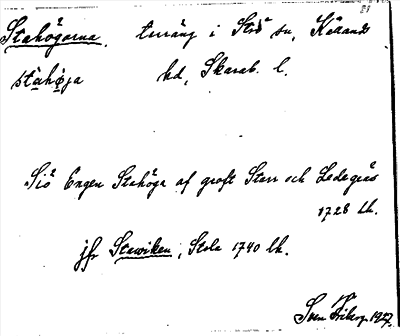 Stahögarna. terräng i Strö sn, Kållands
ståhø̨ja hd, Skarab. l.
Siö Engen Stahöga af groft Starr och Ledegräs
1728 lh.
jfr Stawiken, Stola 1740 lh.
Sven Friberg 1927.